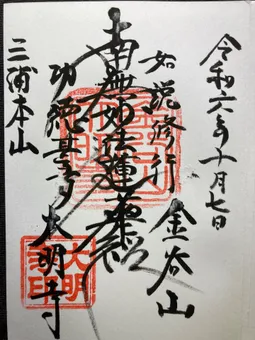 令和六年十月七日
如説修行 金谷山
南無妙法蓮華経
功徳甚多 大明寺
三浦本山
大明寺印